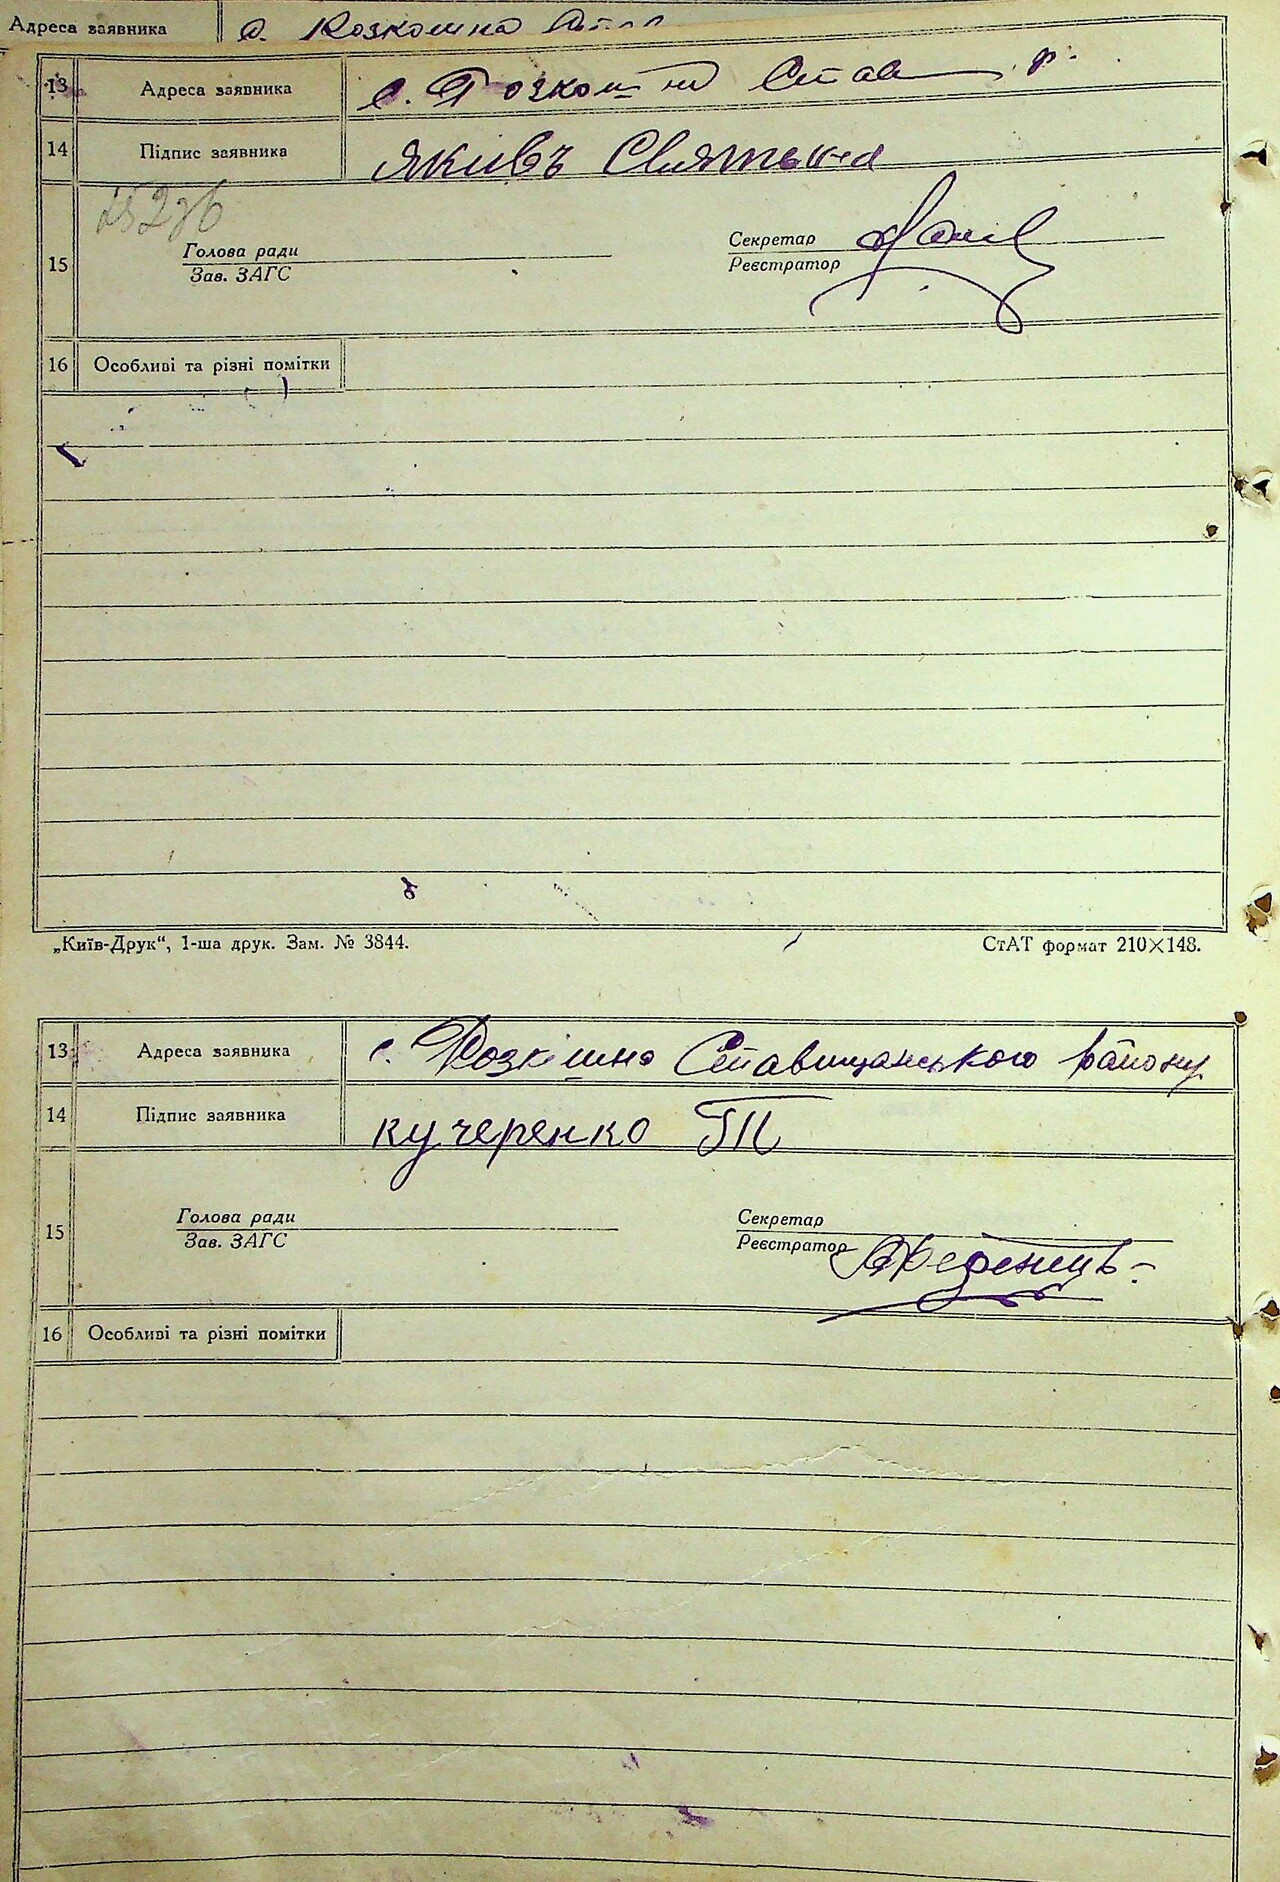 Адреса заявника с. Розкошна
13 Адреса заявника с. Розкошна Став р.
14 Підпис заявника Якивъ
15 Голова ради Секретар
Зав. ЗАГС Реєстратор
16 Особливі та різні помітки
„Київ-Друк“, 1-ша друк. Зам. № 3844. СтАТ формат 210×148.
13 Адреса заявника с. Розкішна Ставищанського району
14 Підпис заявника кучеренко ГП
15 Голова ради Секретар
Зав. ЗАГС Реєстратор
16 Особливі та різні помітки